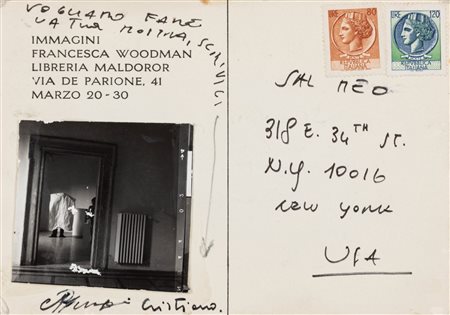 VOGLIAMO FARE
LA TUA MOSTRA, SCRIVICI
IMMAGINI
FRANCESCA WOODMAN
LIBRERIA MALDOROR
VIA DE PARIONE, 41
MARZO 20-30
Cristiano.
LIRE 80
LIRE 120
SAL MEO
318 E. 34TH ST.
N.Y. 10016
NEW YORK
USA